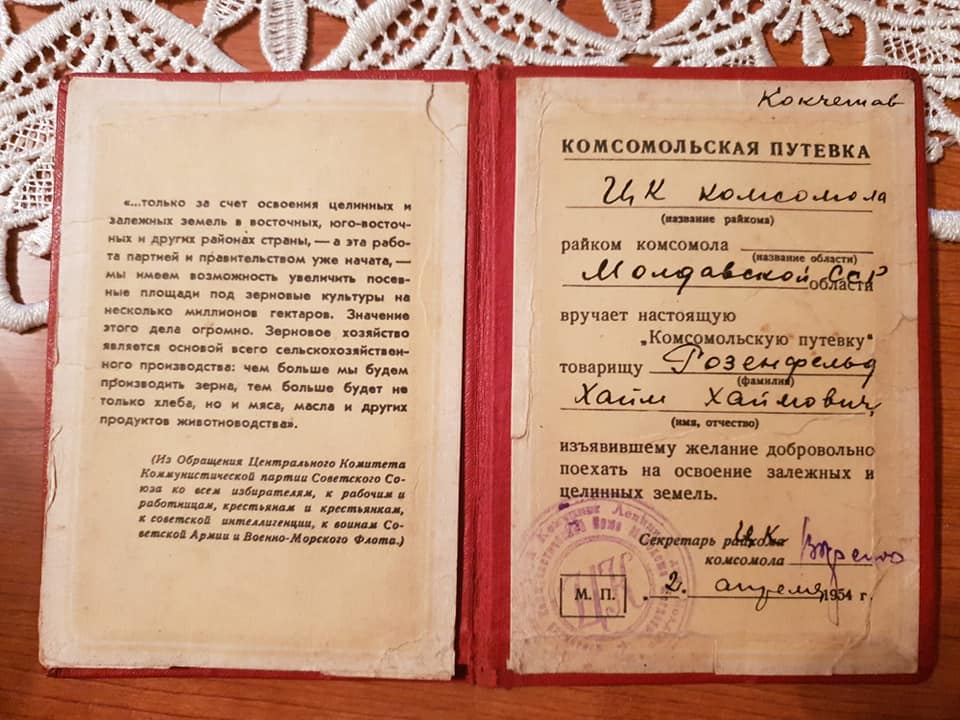 «...только за счет освоения целинных и
залежных земель в восточных, юго-восточ-
ных и других районах страны, — а эта рабо-
та партией и правительством уже начата, —
мы имеем возможность увеличить посев-
ные площади под зерновые культуры на
несколько миллионов гектаров. Значение
этого дела огромно. Зерновое хозяйство
является основой всего сельскохозяйствен-
ного производства: чем больше мы будем
производить зерна, тем больше будет не
только хлеба, но и мяса, масла и других
продуктов животноводства».
(Из Обращения Центрального Комитета
Коммунистической партии Советского Со-
юза ко всем избирателям, к рабочим и
работницам, крестьянам и крестьянкам,
к советской интеллигенции, к воинам Со-
ветской Армии и Военно-Морского Флота.)
Кокчетав
КОМСОМОЛЬСКАЯ ПУТЕВКА
ЦК комсомола
(название райкома)
райком комсомола
(название области)
Молдавской ССР области
вручает настоящую
„Комсомольскую путевку"
товарищу Розенфельд
(фамилия)
Хаим Хаймович,
(имя, отчество)
изъявившему желание добровольно
поехать на освоение залежных и
целинных земель.
Секретарь райкома ЦК
комсомола
М. П. 2. апреля 1954 г.
ЦК